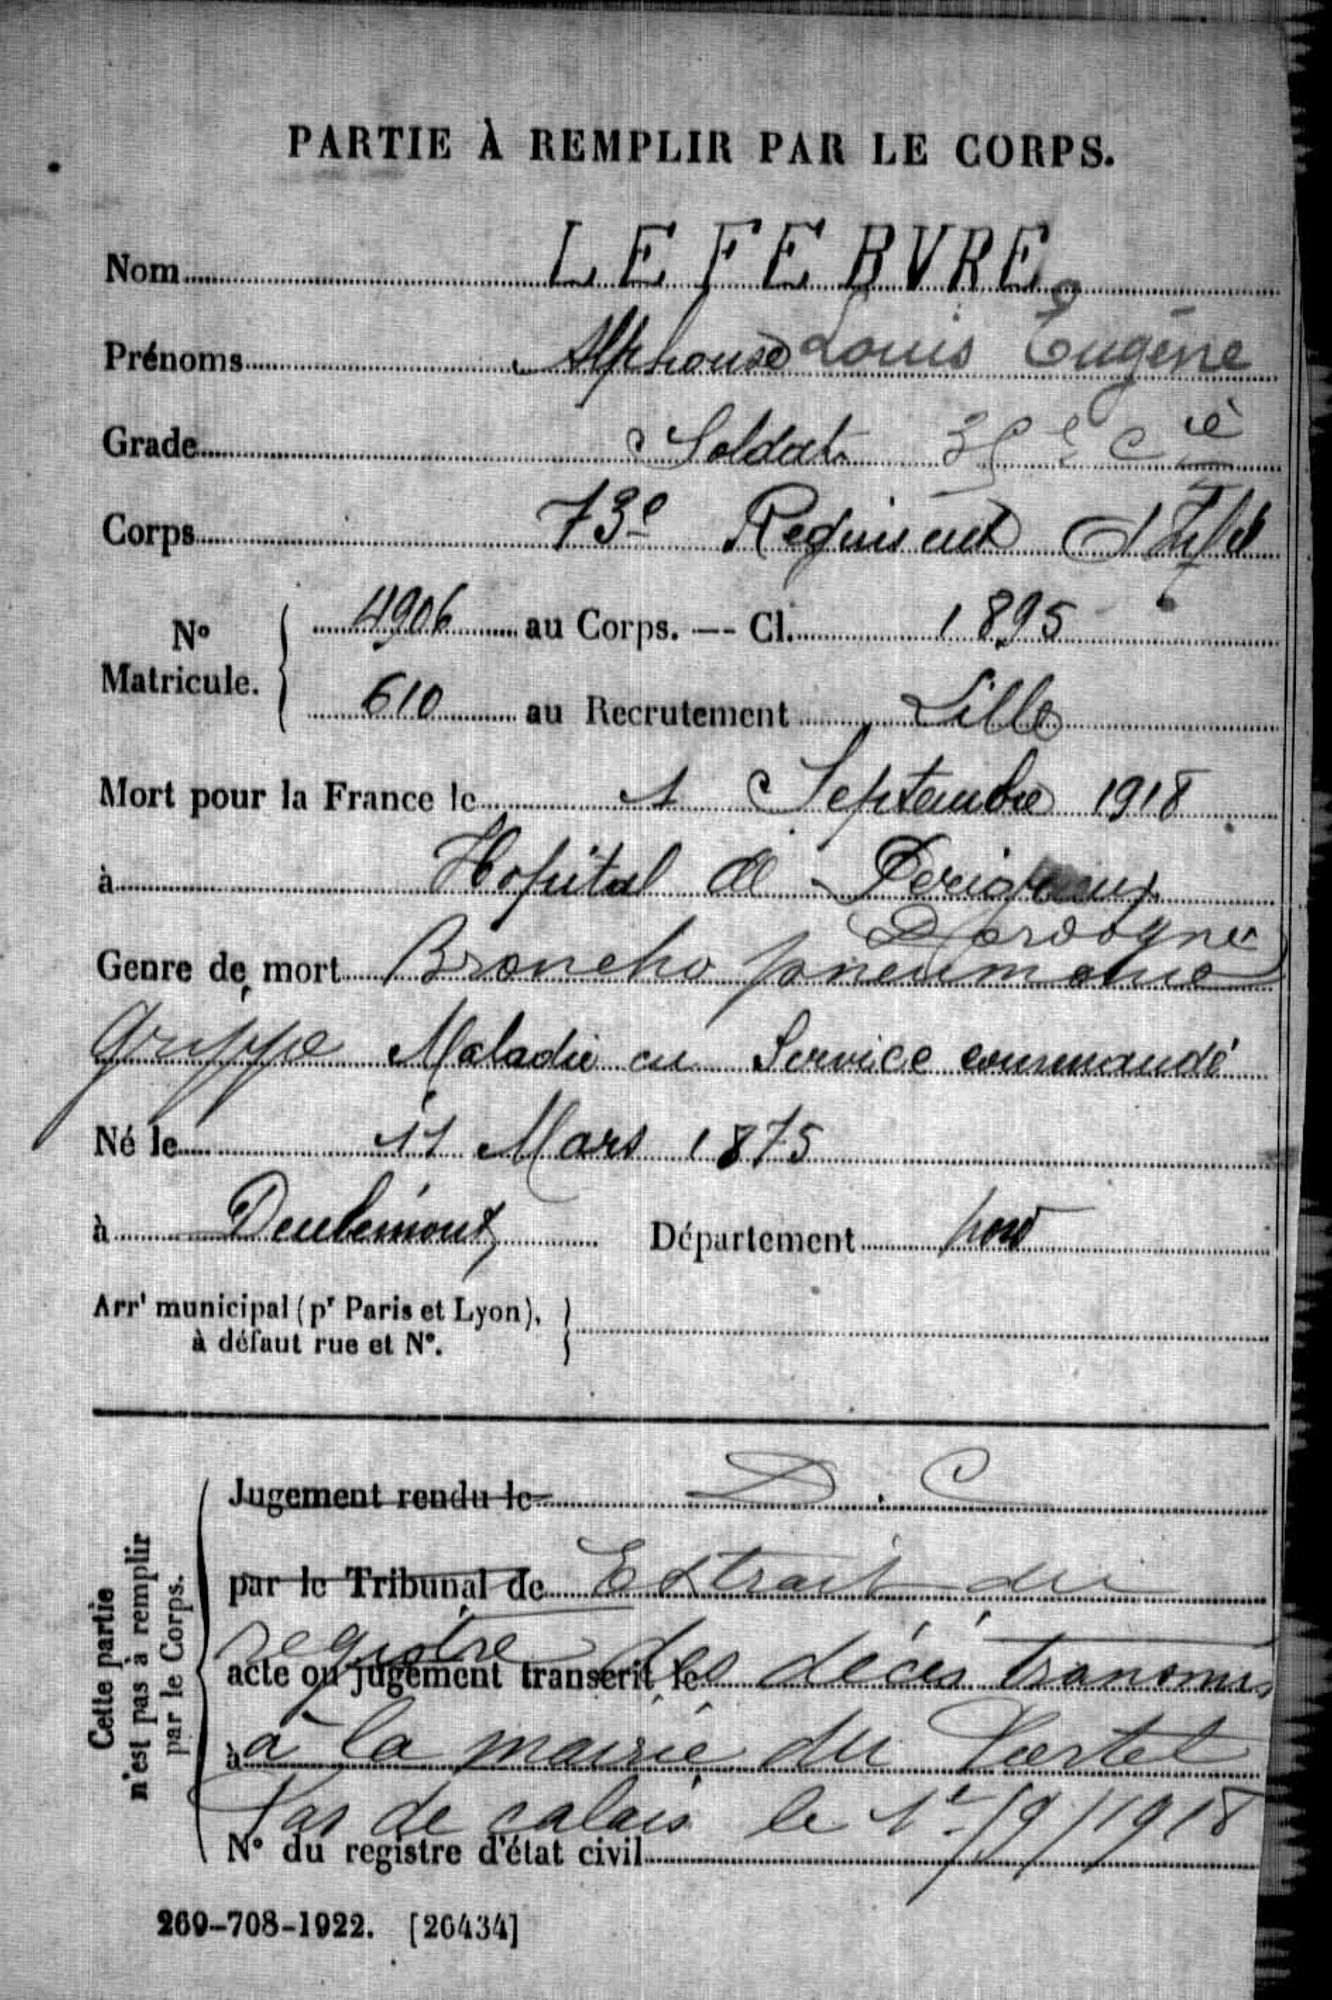 PARTIE À REMPLIR PAR LE CORPS.
Nom LEFEBVRE
Prénoms Alphonse Louis Eugène
Grade Soldat 35e Cie
Corps 73e Regiment d'Inf
No Matricule. 4906 au Corps. — Cl. 1895
610 au Recrutement Lille
Mort pour la France le 1 Septembre 1918
à Hopital de Perigueux
Dordogne
Genre de mort Broncho pneumonie
Grippe Maladie en Service commandé
Né le 11 Mars 1875
à Deulemont Département Nord
Arrt municipal (pr Paris et Lyon),
à défaut rue et No.
Cette partie
n'est pas à remplir
par le Corps.
Jugement rendu le D. C
par le Tribunal de Extrait du
registre des décès transmis
acte ou jugement transcrit le
à à la mairie du Portel
Pas de calais le 1r/9/1918
No du registre d'état civil
269-708-1922. [26434]